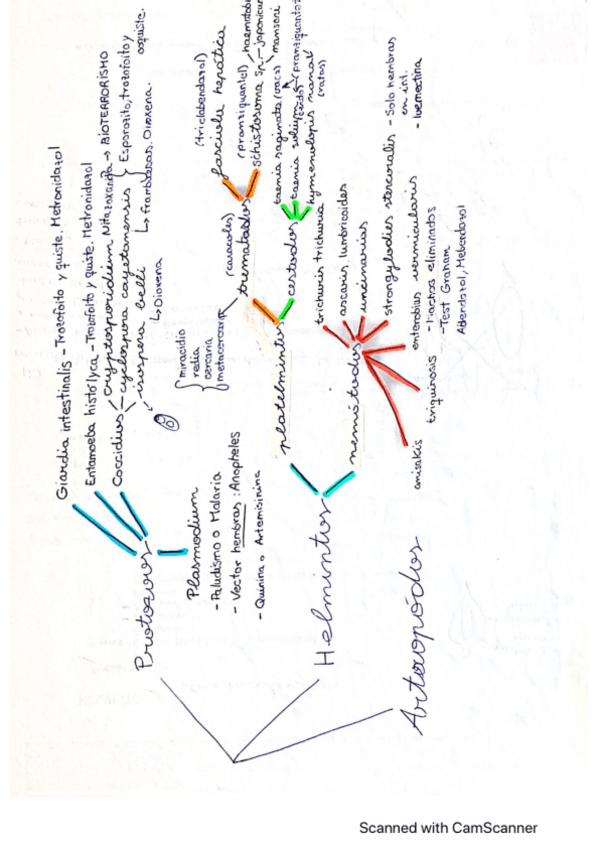 Protozoos
Giardia intestinalis - Trofofoito y quiste. Metronidazol
Entamoeba histolyca - Trofofoito y quiste. Metronidazol
Coccidios
cryptosporidium Nitazoxanida → BIOTERRORISMO
cyclospora cayetanensis { Esporozito, trofofoito y ooquiste.
↳ frambuesas. Dioxena.
isospora belli
↳ Dioxena
Plasmodium
- Paludismo o Malaria
- Vector hembras: Anopheles
- Quinina o Artemisinina
Helmintos
platelmintos
trematodos
(caracoles)
miracidio
redia
cercaria
metacercaria
(triclabendazol)
fasciola hepática
(praziquantel)
schistosoma sp.
haematobi
japonicum
mansoni
cestodos
taenia saginata (vaca)
taenia solium
(cerdo)
(praziquantel
hymenolepis nana
(ratas)
nematodos
trichuris trichuria
ascaris lumbricoides
uncinarias
strongylodies stercoralis
- Solo hembras
en int.
- Ivermectina
enterobius vermicularis
- Machos eliminados
- Test Graham
Albendazol, Mebendazol
triquinosis
anisakis
Artropódos
Scanned with CamScanner